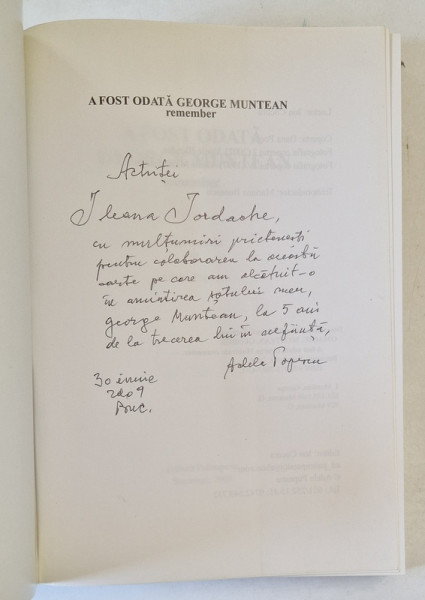 A FOST ODATĂ GEORGE MUNTEAN
remember
Actriței
Ileana Iordache,
cu mulțumiri prietenești
pentru colaborarea la această
carte pe care am alcătuit-o
în amintirea soțului meu,
George Muntean, la 5 ani
de la trecerea lui în neființă,
Adela Popescu
30 iunie
2009
Buc.